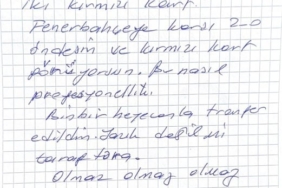 İki kırmızı kart
Fenerbahçeye karşı 2-0
öndesin ve kırmızı kart
görüyorsun. Bu nasıl
profesyonellik.
Binbir heyecanla transfer
edildin. Yazık değil mi
taraftara.
Olmaz olmaz olmaz